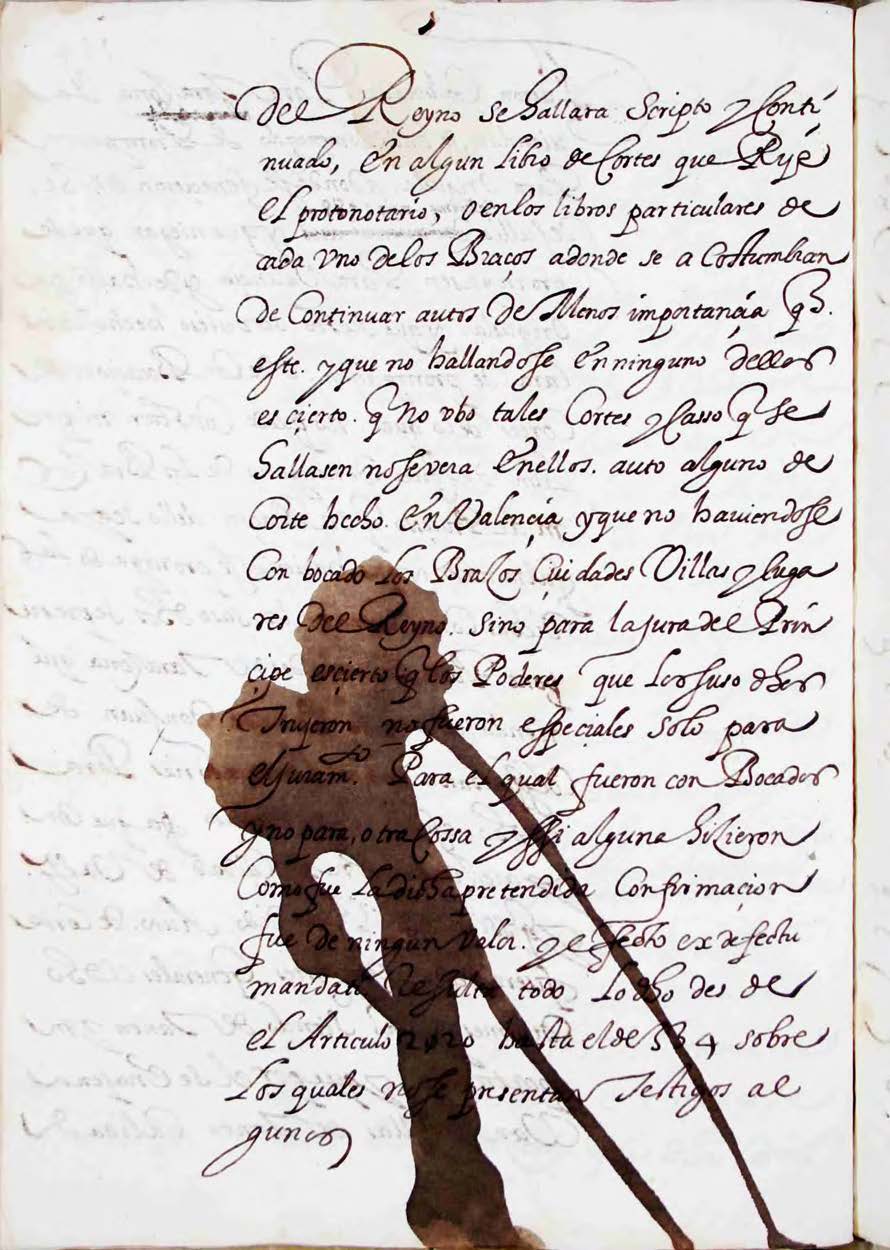 del Reyno se hallara scripto y Conti
nuado, En algun libro de Cortes que Rije
el protonotario, o en los libros particulares de
cada uno de los Braços adonde se a Costumbran
de Continuar autos de Menos importançia q̃.
este. y que no hallandose En ninguno dellos
es çierto. q̃ No ubo tales Cortes y Casso q̃ se
hallasen no se vera En ellos. auto alguno de
Corte hecho. En Valençia y que no haviendose
Con bocado los Brazos Çuidades Villas y luga
res del Reyno. sino para la jura del Prin
çipe es çierto q̃ los Poderes que los suso dhos
Trujeron no fueron espeçiales solo para
el Juramto. Para el qual fueron con Bocados
y no para, otra Cossa y si alguna hiZieron
Como fue la dicha pretendida Confirmaçion
fue de ningun valor. y efecto ex defectu
mandati Resulta todo lo dho des de
el Articulo 2020 hasta el de 534 sobre
los quales no se presentan Testigos al
gunos